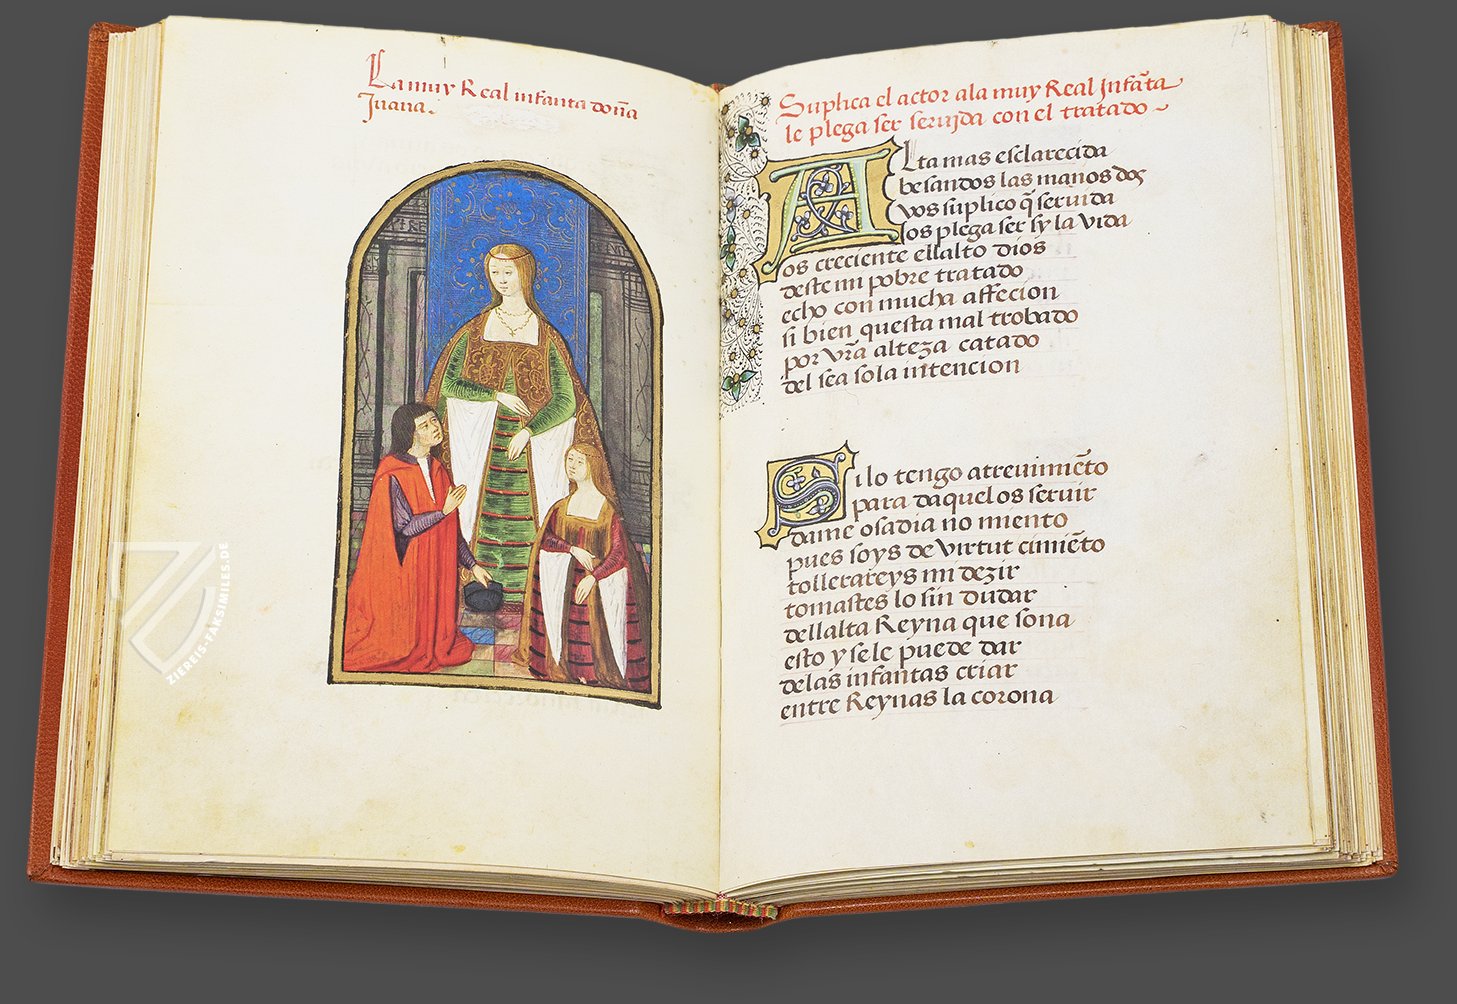 La muy Real infanta doña
Juana.
74
Suplica el actor ala muy Real Infãta
le plega ser seruida con el tratado
Alta mas esclarecida
besandos las manos dos
vos suplico q̃ seruida
os plega ser sy la vida
os creciente ellalto dios
deste mi pobre tratado
echo con mucha affecion
si bien questa mal trobado
por vr̃a alteza catado
del sea sola intencion
Si lo tengo atreuimiẽto
para daquel os seruir
dame osadia no miento
pues soys de virtut cimiẽto
tollerareys mi dezir
tomastes lo sin dudar
dellalta Reyna que sona
esto y se le puede dar
delas infantas criar
entre Reynas la corona
ZIEREIS-FAKSIMILES.DE